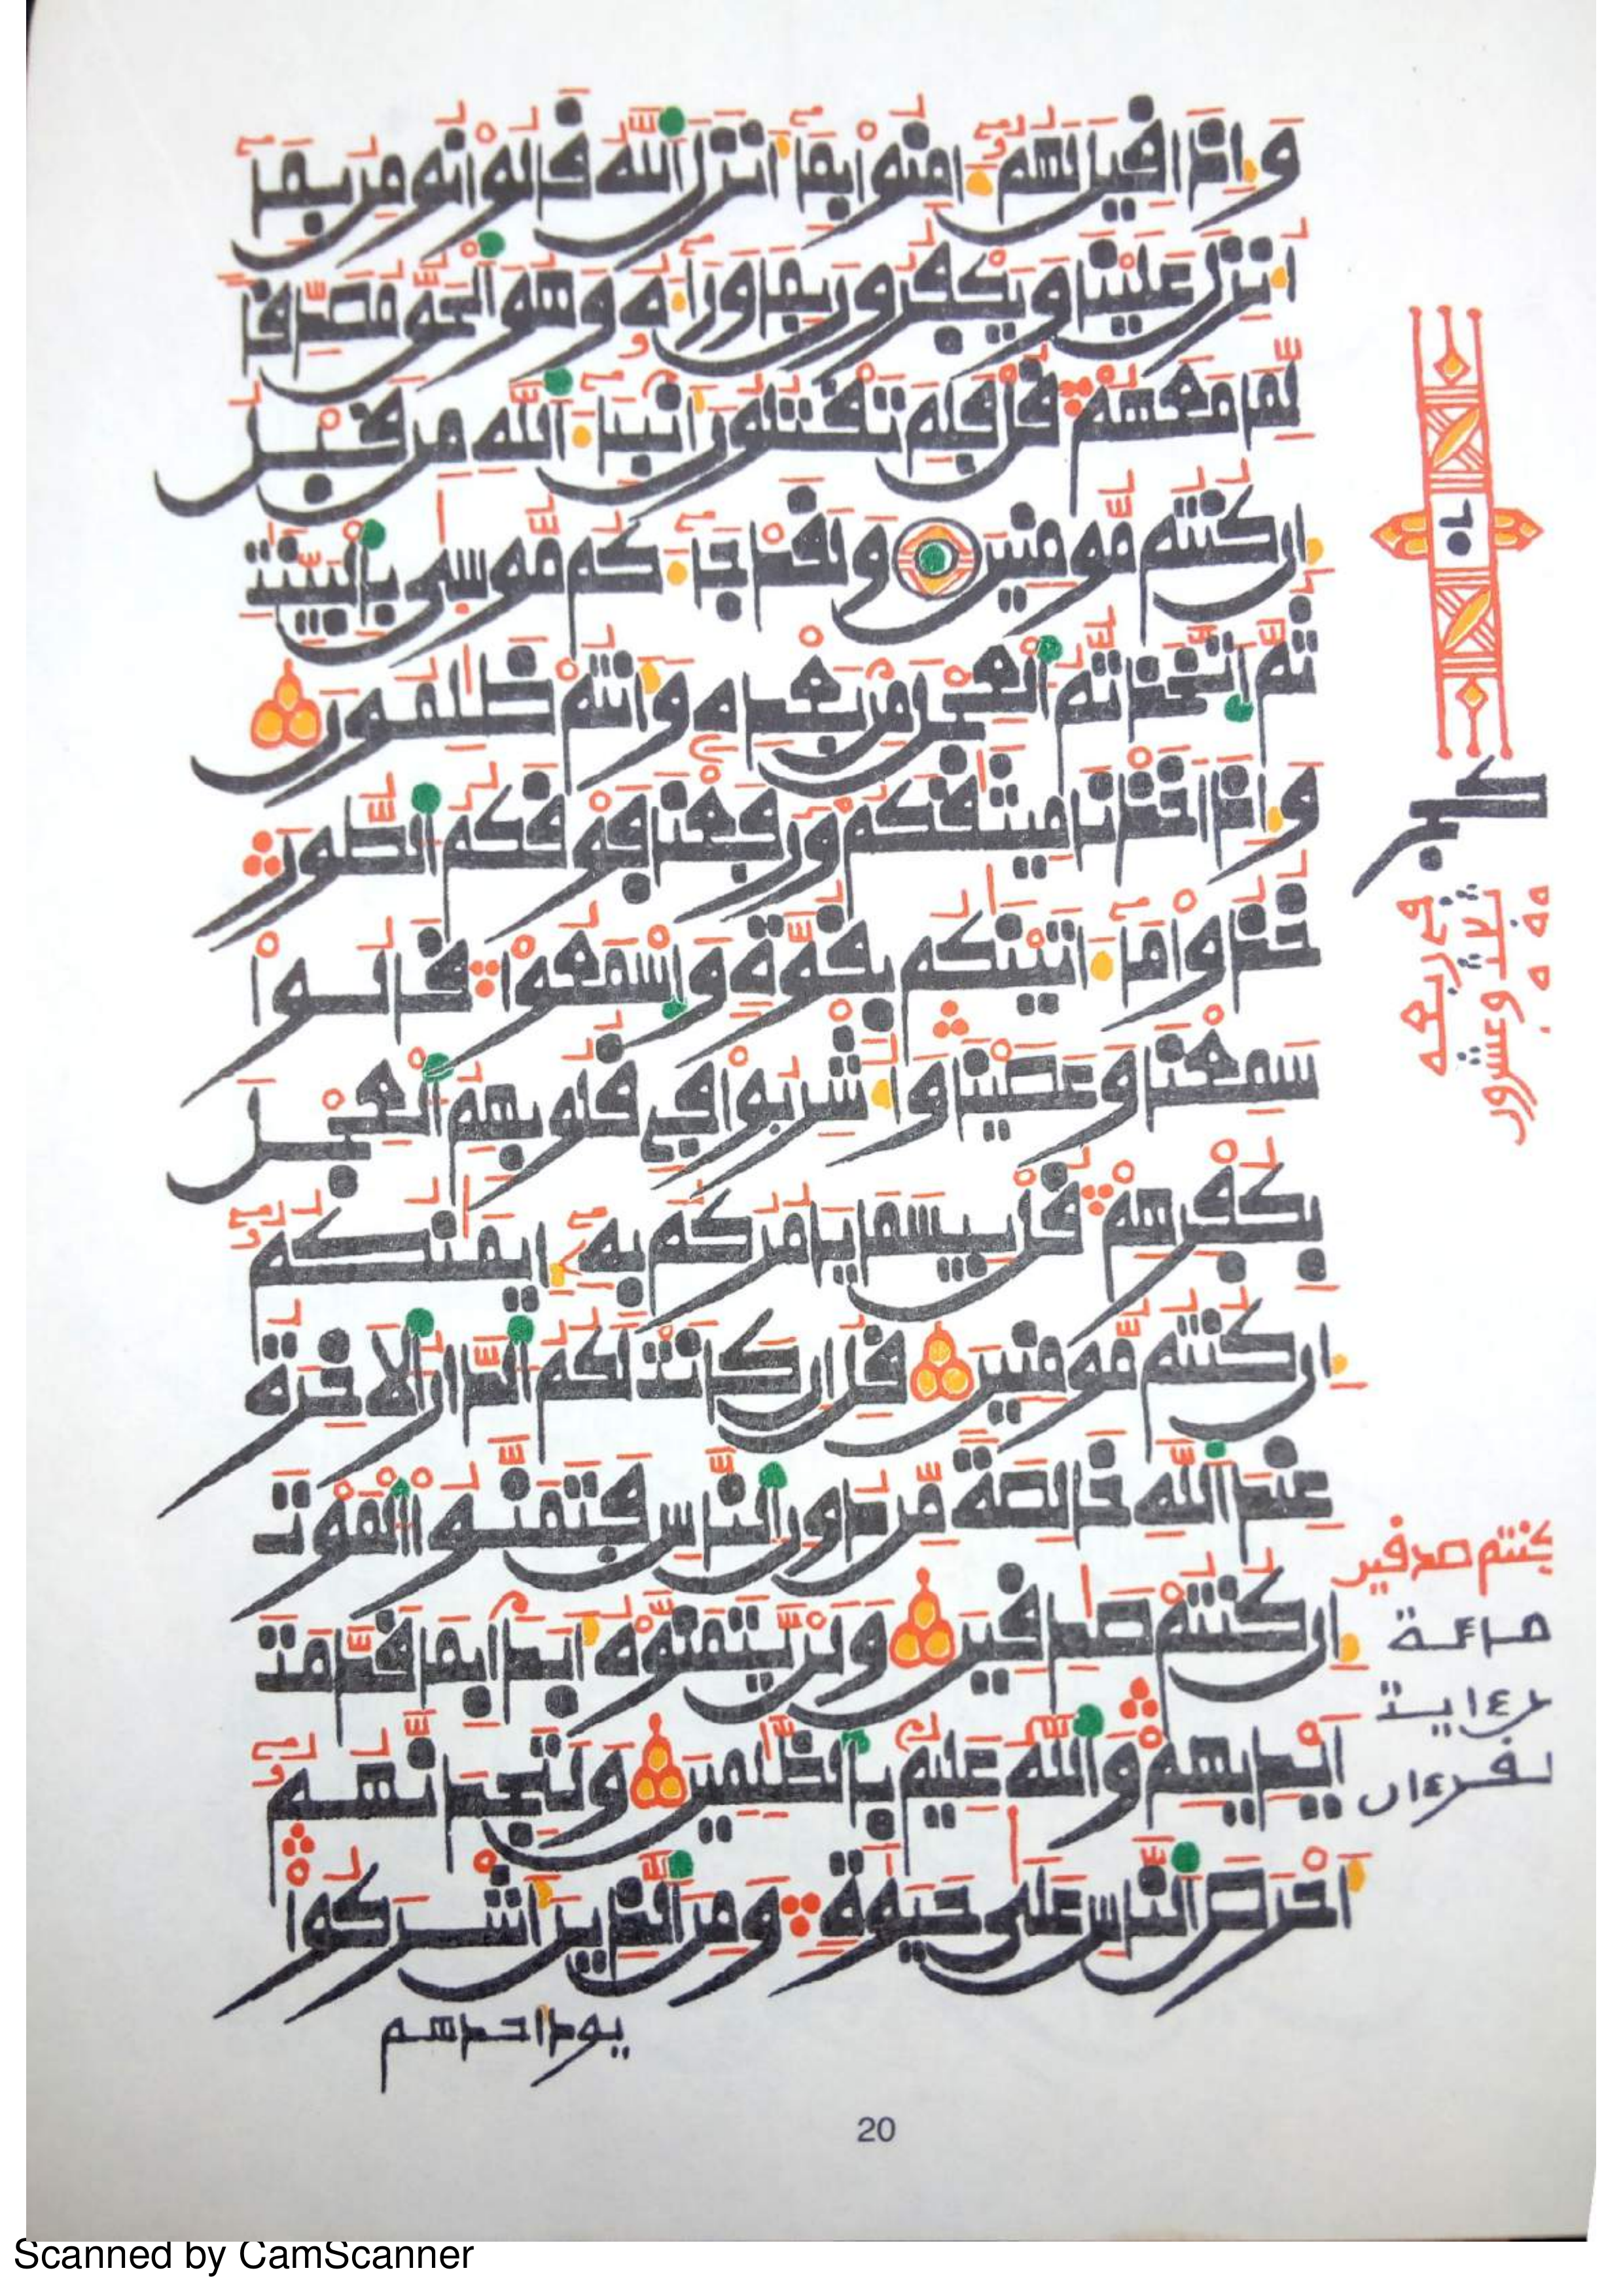 وإذا قيل لهم ءامنوا بما أنزل الله قالوا نومن بما
أنزل علينا ويكفرون بما وراءه وهو الحق مصدقا
لما معهم قل فلم تقتلون أنبئاء الله من قبل
إن كنتم مومنين ولقد جاءكم موسى بالبينت
ثم اتخذتم العجل من بعده وأنتم ظلمون
وإذ اخذنا ميثقكم ورفعنا فوقكم الطور
خذوا ما ءاتينكم بقوة واسمعوا قالوا
سمعنا وعصينا وأشربوا في قلوبهم العجل
بكفرهم قل بيسما يامركم به إيمنكم
إن كنتم مومنين قل ان كانت لكم الدار الاخرة
عند الله خالصة من دون الناس فتمنوا الموت
إن كنتم صدقين ولن يتمنوه أبدا بما قدمت
أيديهم والله عليم بالظلمين ولتجدنهم
أحرص الناس على حيوة ومن الذين أشركوا
يود احدهم
كنتم صدقين
20
Scanned by CamScanner